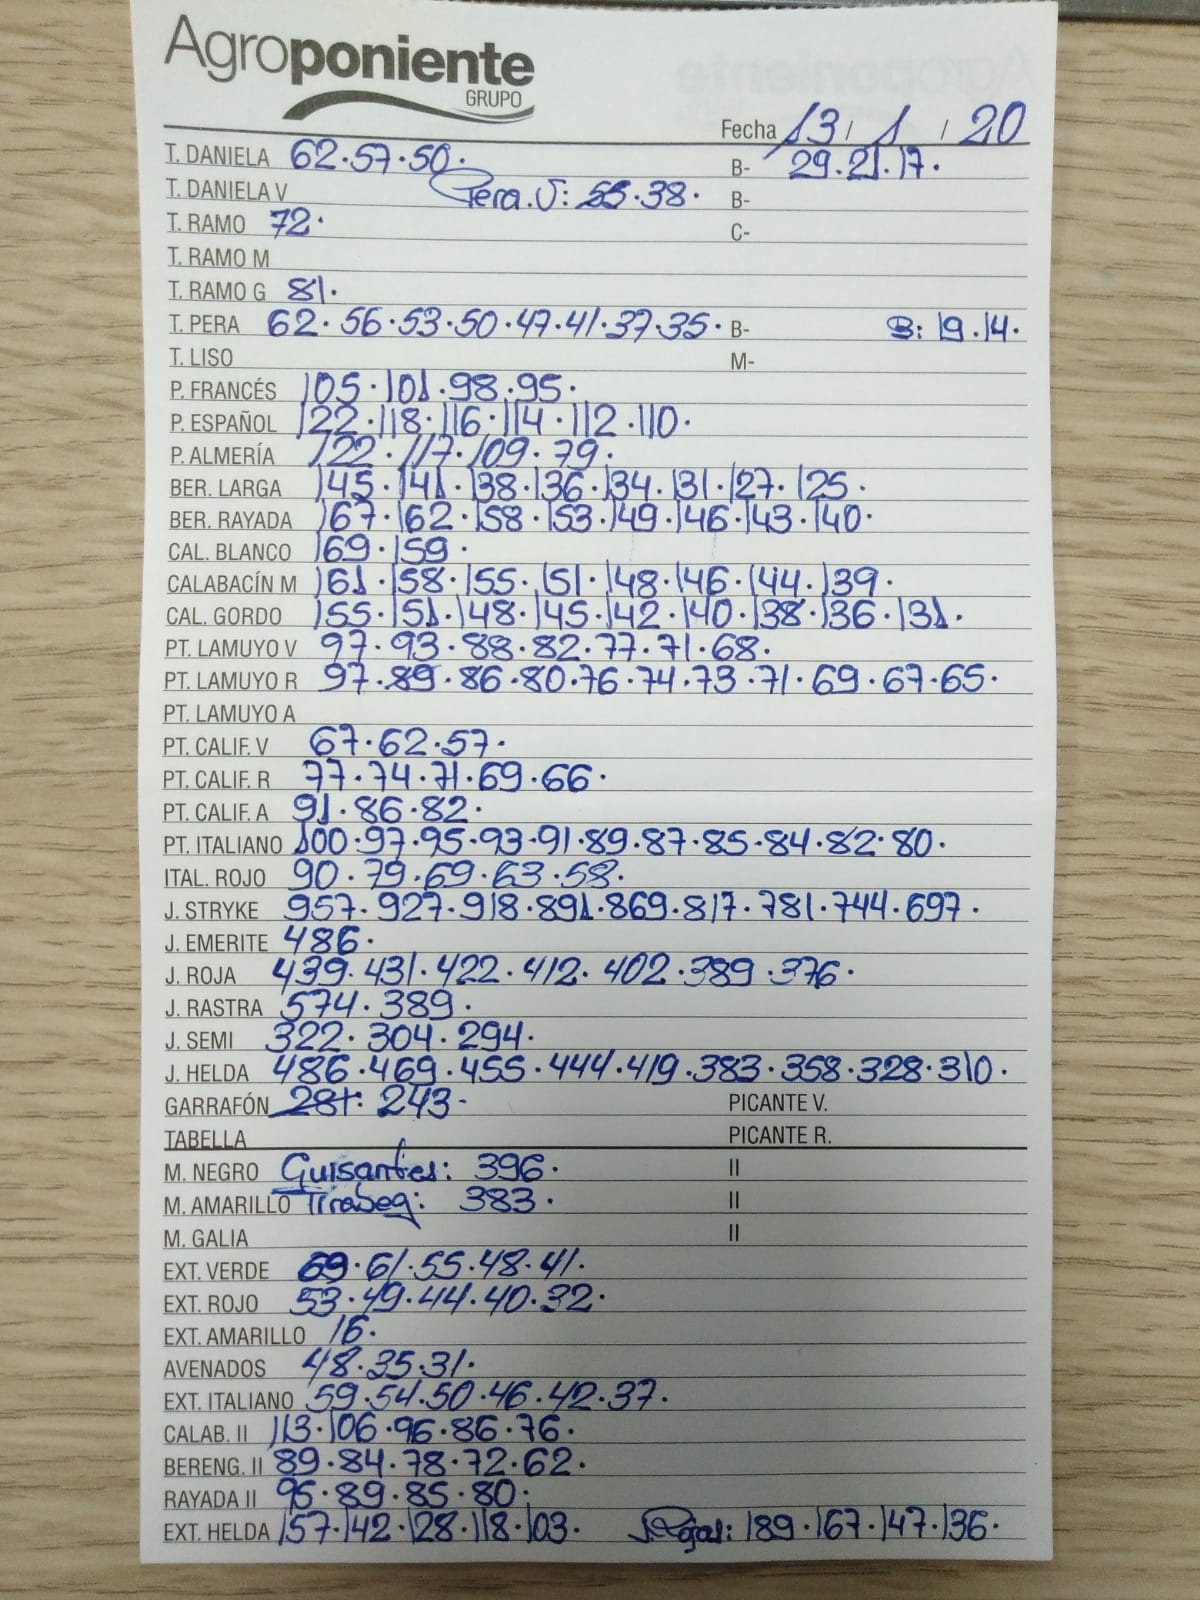 Agroponiente
GRUPO
Fecha 13 / 1 / 20
T. DANIELA 62.57.50. B- 29.21.17.
T. DANIELA V Pera.V: 55.38. B-
T. RAMO 72. C-
T. RAMO M
T. RAMO G 81.
T. PERA 62.56.53.50.47.41.37.35. B- B: 19.14.
T. LISO M-
P. FRANCÉS 105.101.98.95.
P. ESPAÑOL 122.118.116.114.112.110.
P. ALMERÍA 122.117.109.79.
BER. LARGA 145.141.138.136.134.131.127.125.
BER. RAYADA 167.162.158.153.149.146.143.140.
CAL. BLANCO 169.159.
CALABACÍN M 161.158.155.151.148.146.144.139.
CAL. GORDO 155.151.148.145.142.140.138.136.131.
PT. LAMUYO V 97.93.88.82.77.71.68.
PT. LAMUYO R 97.89.86.80.76.74.73.71.69.67.65.
PT. LAMUYO A
PT. CALIF. V 67.62.57.
PT. CALIF. R 77.74.71.69.66.
PT. CALIF. A 91.86.82.
PT. ITALIANO 100.97.95.93.91.89.87.85.84.82.80.
ITAL. ROJO 90.79.69.63.58.
J. STRYKE 957.927.918.891.869.817.781.744.697.
J. EMERITE 486.
J. ROJA 439.431.422.412.402.389.376.
J. RASTRA 574.389.
J. SEMI 322.304.294.
J. HELDA 486.469.455.444.419.383.358.328.310.
GARRAFÓN 281: 243- PICANTE V.
TABELLA PICANTE R.
M. NEGRO Guisantes: 396. II
M. AMARILLO Tirabeq: 383. II
M. GALIA II
EXT. VERDE 69.61.55.48.41.
EXT. ROJO 53.49.44.40.32.
EXT. AMARILLO 16.
AVENADOS 48.35.31.
EXT. ITALIANO 59.54.50.46.42.37.
CALAB. II 113.106.96.86.76.
BERENG. II 89.84.78.72.62.
RAYADA II 95.89.85.80.
EXT. HELDA 157.142.128.118.103. 189.167.147.136.